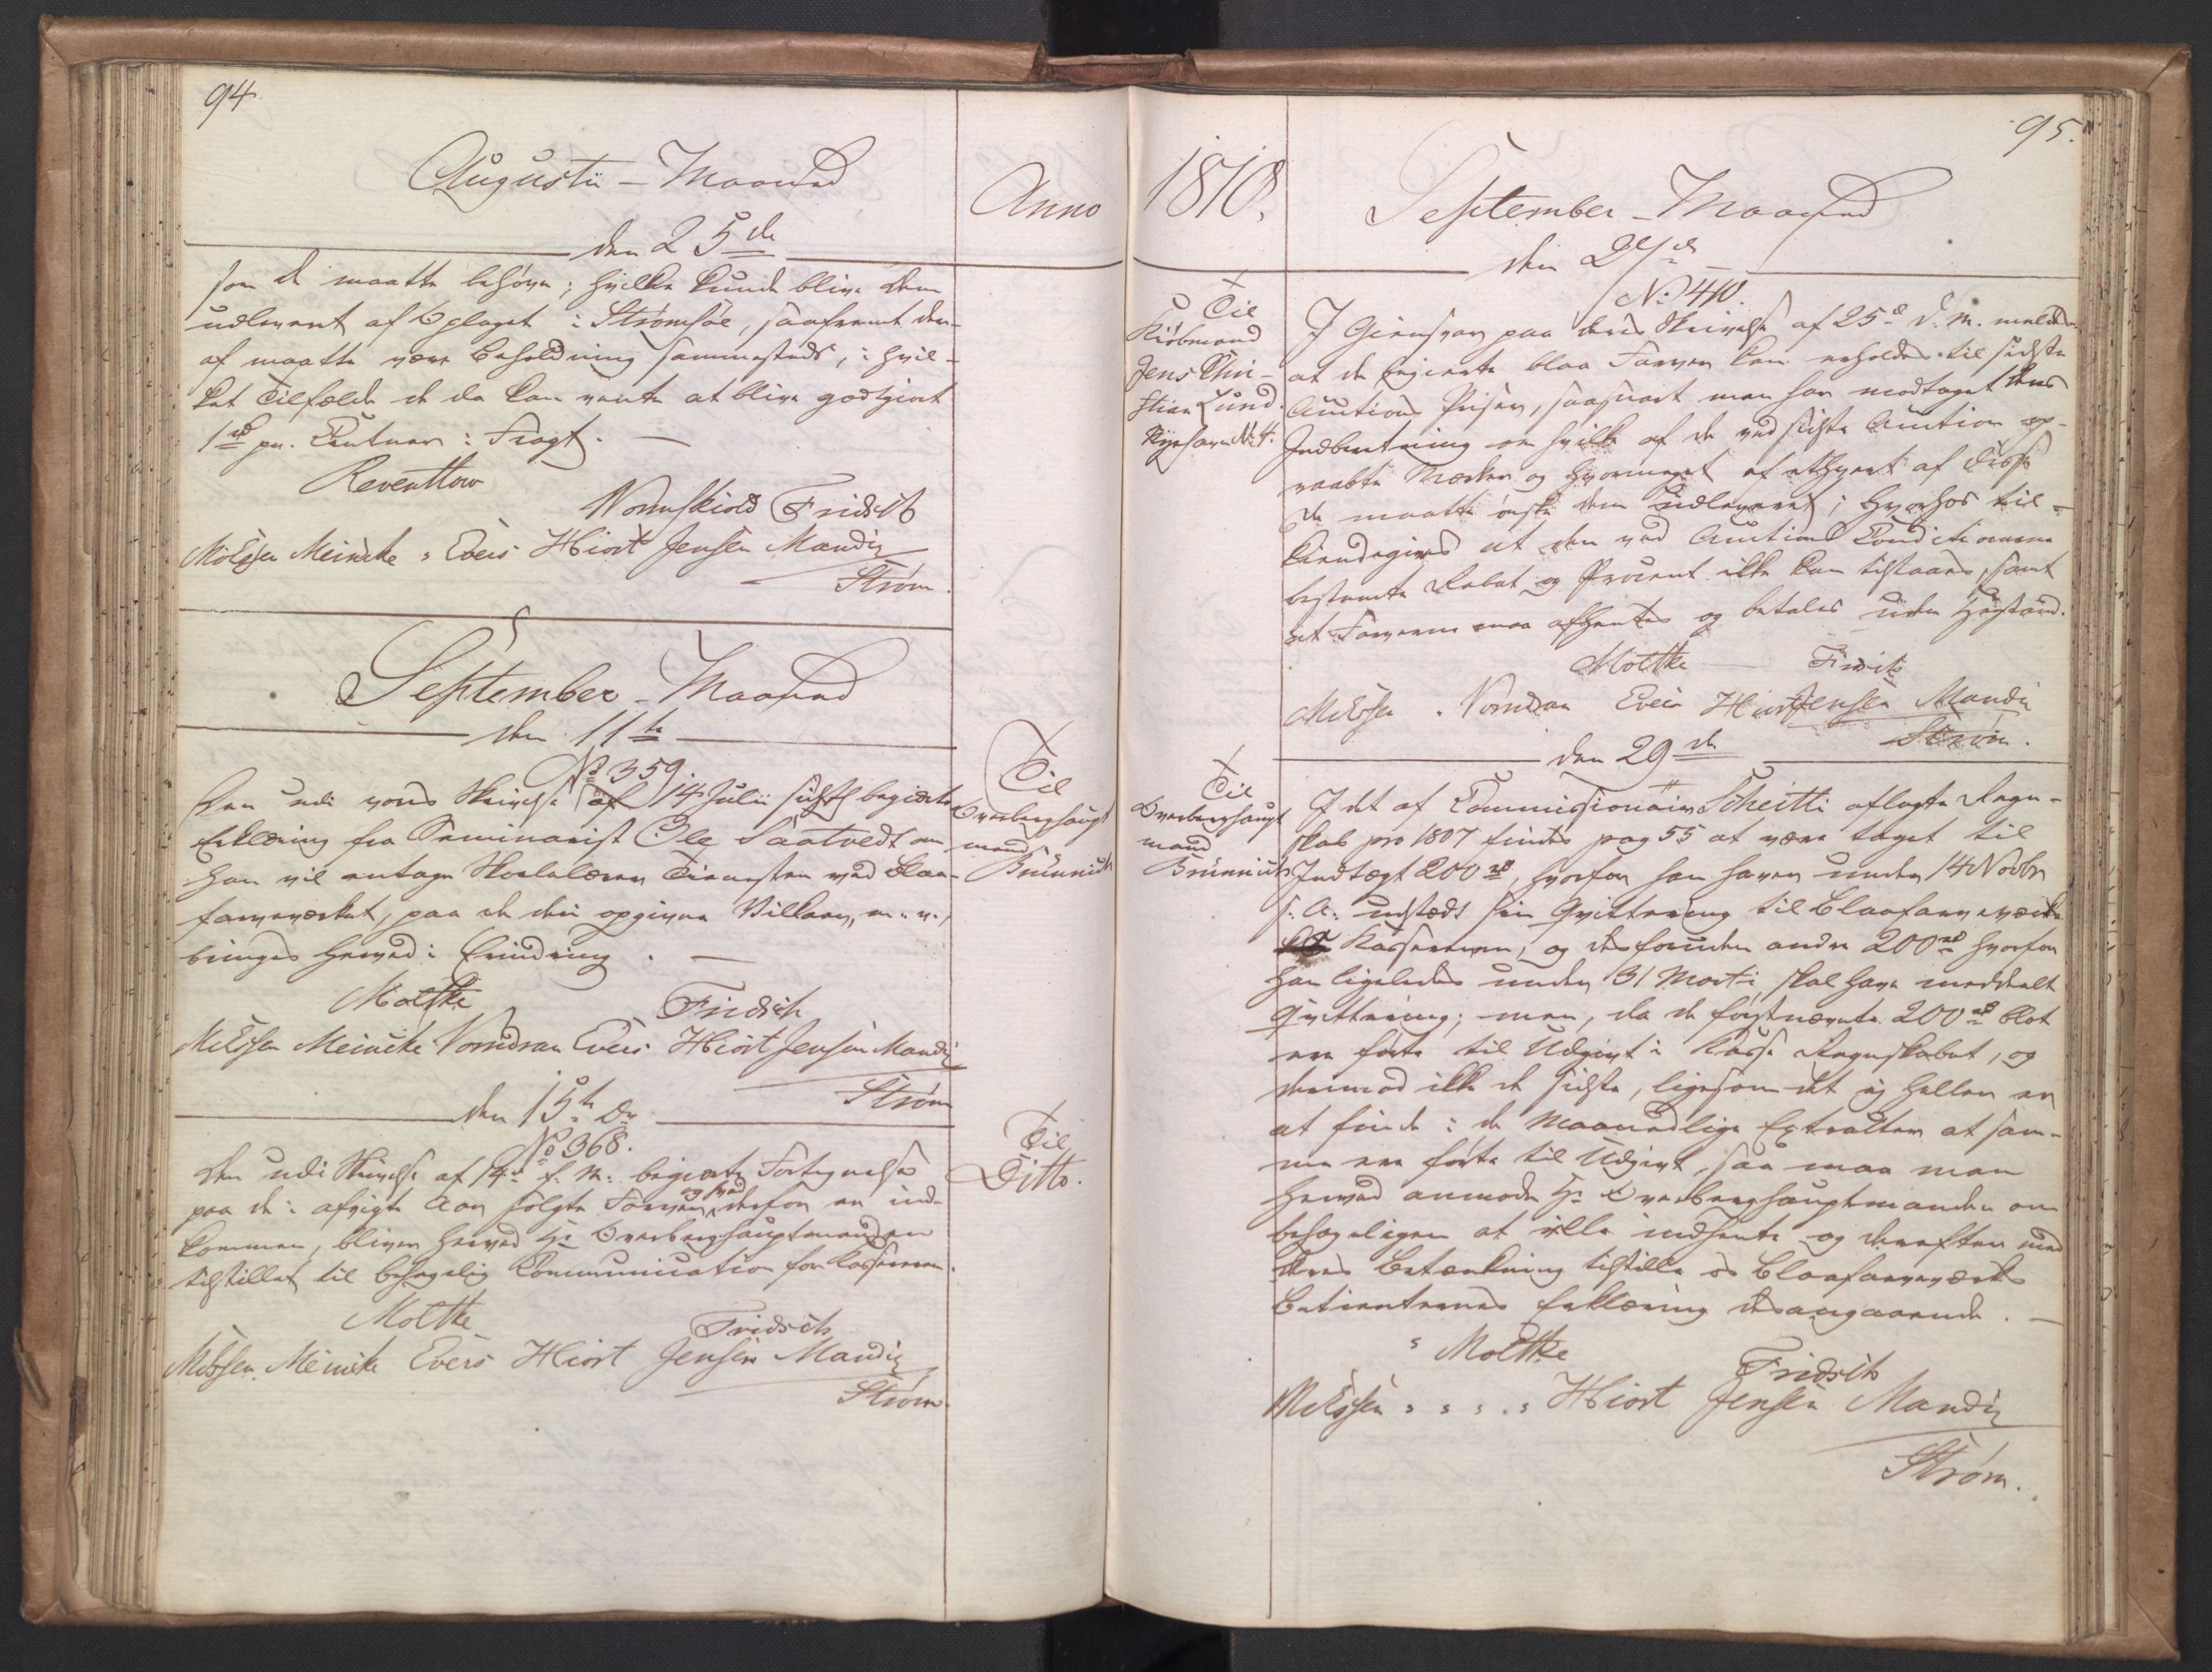 94
Augustii - Maaned
Anno
den 25de
som de maatte behøve; hvilke kunde blive dem
udleveret af Oplaget i Strømsøe, saafremt der-
af maatte være Beholdning sammesteds, i hvil-
ket Tilfælde de da kan vente at blive godtgiort
1 rd pr. Centner i Fragt. —
Reventlow
Wormskiold Fridsch
Meissen Meincke, Evers Hiort Jensen Mandix
Strøm.
September - Maaned
den 11te
No 359
Til
Overberghaupt
mand
Brünnich
Den udi vores Skrivelse af 14 Julii sidstl begierte
Erklæring fra Seminarist Ole Saatvedt om
han vil antage Skolelærer Tienesten ved Blaa-
farveværket, paa de der opgivne Vilkaar, m. v.,
bringes herved i Erindring. —
Moltke Fridsch
Meissen Meincke Vorndran Evers Hiort Jensen Mandix
Strøm
den 15te Do
No 368.
Til
Ditto.
Den udi Skrivelse af 14de f. M. begierte Fortegnelse
paa de i afvigte Aar solgte Farver, og hvad derfor er ind-
kommen, bliver herved Hr Overberghauptmanden
tilstillet til behagelig Communication for Kassereren.
Moltke Fridsch
Meissen. Meincke Evers Hiort Jensen Mandix
Strøm.
95.
1810.
September - Maaned
den 27de
No 410.
Til
Kiøbmand
Jens Chri-
stian Lund.
Nyehavn No 4.
I Giensvar paa deres Skrivelse af 25de d. M. meldes
at de begierte blaa Farver kan erholdes til sidste
Auctions Priser, saasnart man har modtaget deres
Indberetning om hvilke af de ved sidste Auction op-
raabte Mærker og hvormeget af ethvert af disse
De maatte ønske dem udleveret; hvorhos til-
kiendegives at den ved Auctions Conditionerne
bestemte Rabat og Procent ikke kan tilstaaes, samt
at Farverne maa afhentes og betales uden Henstand.
Moltke — Fridsch
Meissen. Vorndran Evers Hiort Jensen Mandix
Strøm.
den 29de
Til
Overberghaupt
mand
Brünnich
I det af Commissionair Scheitli aflagte Regn-
skab pro 1807 findes pag 55 at være taget til
Indtægt 200 rd, hvorfor han haver under 14 Novbr
s. A. udstædt sin Qvittering til Blaafarveværks
Kassereren, og desforuden andre 200 rd hvorfor
han ligeledes under 31 Martii skal have meddeelt
Qvittering; men, da de førstnævnte 200 rd blot
ere førte til Udgivt i Kasse Regnskabet, og
derimod ikke de sidste, ligesom det ej heller er
at finde i de Maanedlige Extracter at sam-
me ere førte til Udgivt, saa maa man
herved anmode Hr Overberghauptmanden om
behageligen at ville indhente og derefter med
deres Betænkning tilstille os Blaafarveværks
Betienternes Erklæring desangaaende. —
Moltke Fridsch
Meissen Hiort Jensen Mandix
Strøm.